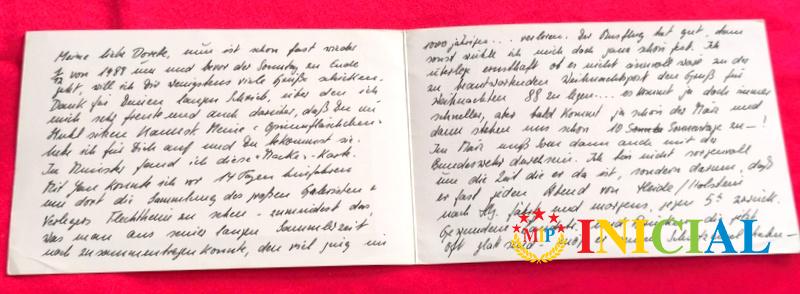 Meine liebe Dorete, nun ist schon fast wieder
1/12 von 1988 um und bevor der Sonntag zu Ende
geht, will ich Dir wenigstens viele Grüße schicken.
Dank für Deinen langen Schrieb, über den ich
mich sehr freute und auch darüber, daß Du im
Stuhl sitzen kannst. Meine
hebe ich für Dich auf und Du bekommst sie.
In Münster fand ich diese "Macke"-Karte.
Mit Jane konnte ich vor 14 Tagen hinfahren
um dort die Sammlung des großen Galeristen &
Verlegers Flechtheim zu sehen - zumindest das,
was man aus seiner langen Sammlerzeit
noch zusammentragen konnte, denn viel ging im
1000 jährigen... verloren. Der Ausflug tat gut, denn
sonst wühle ich mich doch ganz schön fest. Ich
überlege ernsthaft ob es nicht sinnvoll wäre zu der
zu beantwortenden Weihnachtspost den Gruß für
Weihnachten 88 zu legen.... es kommt ja doch immer
schneller, aber bald kommt ja schon der März und
dann stehen uns schon 10 Sonntage zu -!
Im März muß Sven dann auch mit der
Bundeswehr durchsein. Ich bin nicht sorgenvoll
um die Zeit die er da ist, sondern darum, daß
er fast jeden Abend von Heide/Holstein
nach Hbg. fährt und morgens, gegen 5°° zurück.
oft glatt sind
MIP INICIAL